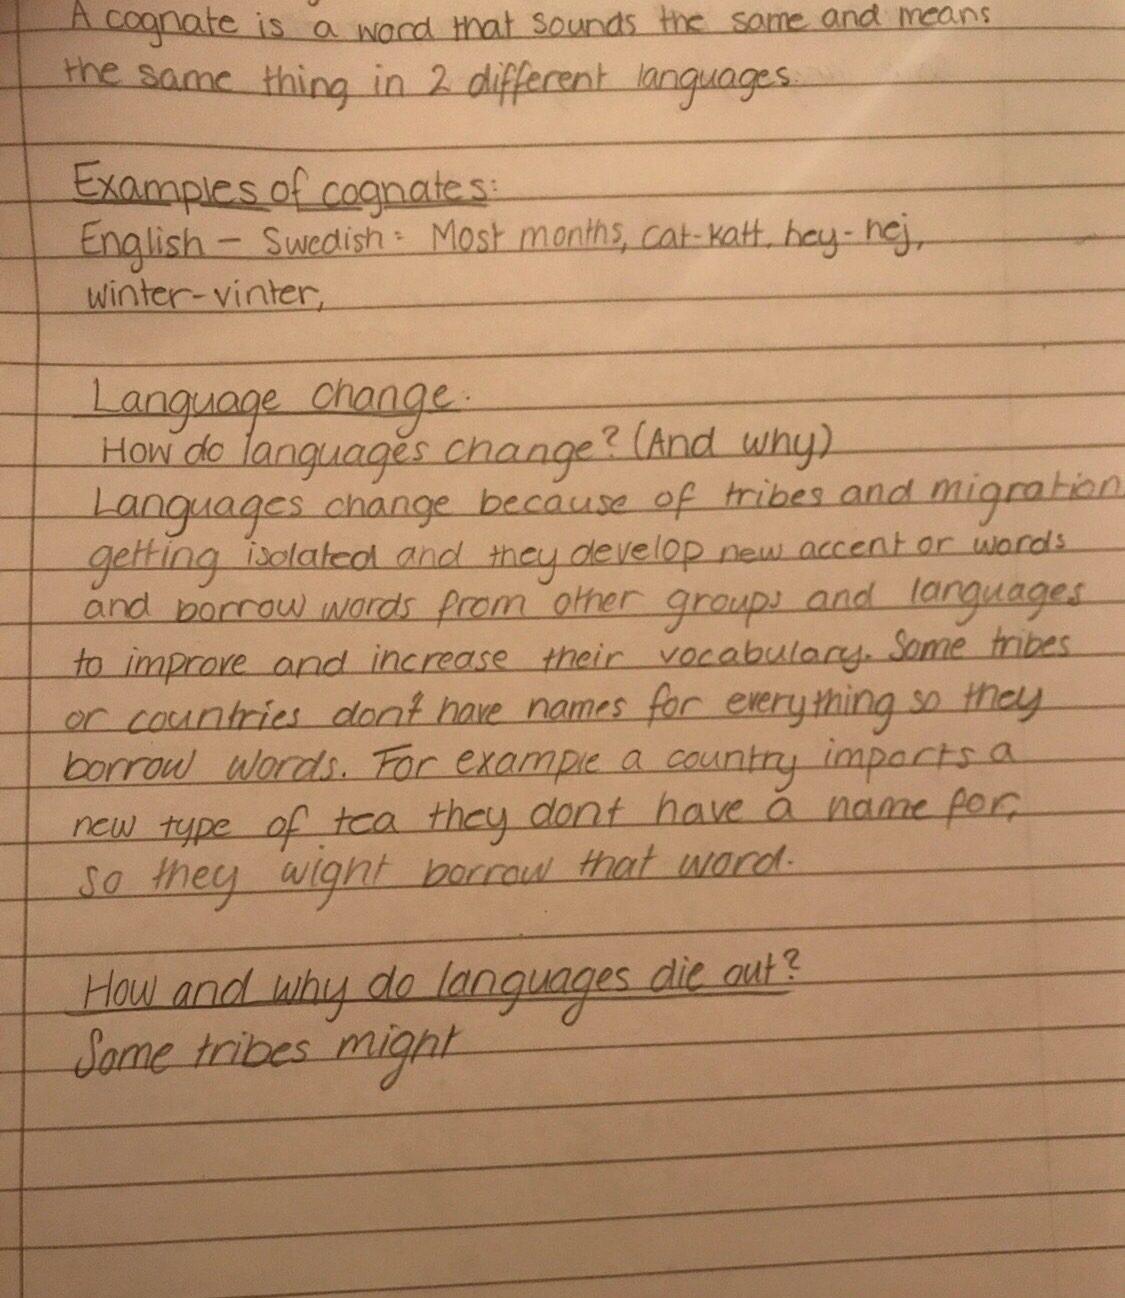 A cognate is a word that sounds the same and means
the same thing in 2 different languages.
Examples of cognates:
English - Swedish: Most months, cat-katt, hey-hej,
winter-vinter,
Language change.
How do languages change? (And why)
Languages change because of tribes and migration
getting isolated and they develop new accent or words
and borrow words from other groups and languages
to improve and increase their vocabulary. Some tribes
or countries don't have names for everything so they
borrow words. For example a country imports a
new type of tea they dont have a name for,
so they wight borrow that word.
How and why do languages die out?
Some tribes might